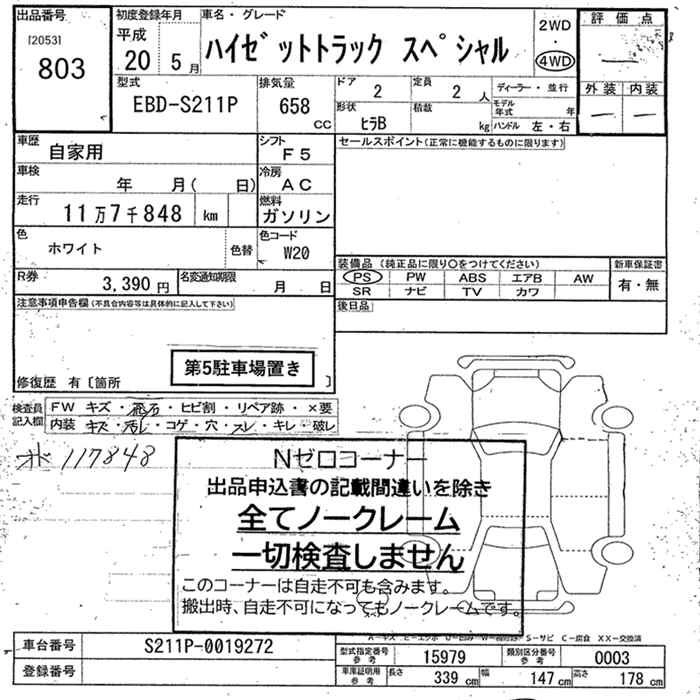 出品番号
[2053]
803
初度登録年月
平成
20 5月
車名・グレード
ハイゼットトラック スペシャル
2WD
・
4WD
評価点
外装 内装
型式
EBD-S211P
排気量
658
CC
ドア
2
定員
2 人
形状
ヒラB
積載
kg
ディーラー・並行
モデル年式 年
ハンドル 左・右
車歴
自家用
シフト
F5
車検
年 月( 日)
冷房
AC
走行
11万7千848 km
燃料
ガソリン
色
ホワイト
色替
色コード
W20
R券
3,390円
名変通知期限
月 日
セールスポイント(正常に機能するものに限ります)
装備品(純正品に限り○をつけてください)
PS PW ABS エアB AW
SR ナビ TV カワ
新車保証書
有・無
後日品
注意事項申告欄(不具合内容等は具体的に記入して下さい)
第5駐車場置き
修復歴 有〔箇所 〕
検査員記入欄
FW キズ・飛石・ヒビ割・リペア跡・×要
内装 キズ・汚レ・コゲ・穴・スレ・キレ・破レ
117848
Nゼロコーナー
出品申込書の記載間違いを除き
全てノークレーム
一切検査しません
このコーナーは自走不可も含みます。
搬出時、自走不可になってもノークレームです。
S-サビ C-腐食 XX-交換済
車台番号
S211P-0019272
登録番号
型式指定番号
参考
15979
類別区分番号
参考
0003
車庫証明用
参考
長さ 339 cm
幅 147 cm
高さ 178 cm